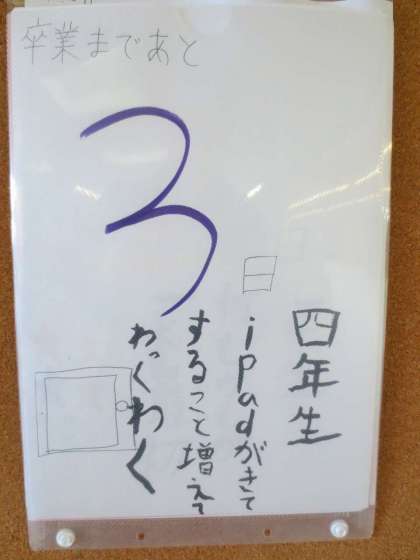 卒業まであと
3
日
四年生
ipadがきて
すること増えて
わくわく